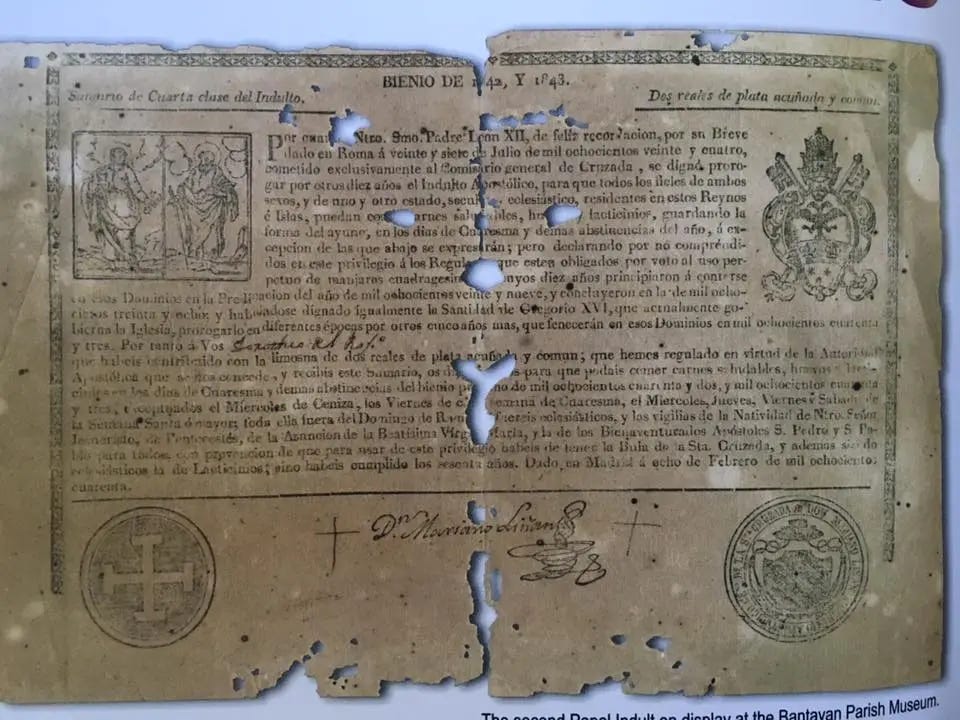 BIENIO DE 1842, Y 1843.
Sumario de Cuarta clase del Indulto.
Dos reales de plata acuñada y comun.
Por cuan Ntro. Smo. Padre Leon XII, de feliz recordacion, por su Breve
dado en Roma á veinte y siete de Julio de mil ochocientos veinte y cuatro,
cometido exclusivamente al Comisario general de Cruzada, se dignó proro-
gar por otros diez años el Indulto Apostólico, para que todos los fieles de ambos
sexos, y de uno y otro estado, secul eclesiástico, residentes en estos Reynos
é Islas, puedan com carnes saludables, hu lacticinios, guardando la
forma del ayuno, en los dias de Cuaresma y demas abstinencias del año, á ex-
cepcion de las que abajo se expresarán; pero declarando por no comprendi-
dos en este privilegio á los Regula que esten obligados por voto al uso per-
petuo de manjares cuadragesim cuyos diez años principiaron á contarse
en esos Dominios en la Predicacion del año de mil ochocientos veinte y nueve, y concluyeron en la de mil ocho-
cientos treinta y ocho: y habiendose dignado igualmente la Santidad de Gregorio XVI, que actualmente go-
bierna la Iglesia, prorogarlo en diferentes épocas por otros cinco años mas, que fenecerán en esos Dominios en mil ochocientos cuarenta
y tres. Por tanto á Vos
que habeis contribuido con la limosna de dos reales de plata acuñada y comun; que hemos regulado en virtud de la Autoridad
Apostólica que se nos concede, y recibís este Sumario, os para que podais comer carnes saludables, huevos y lacti-
cinios en los dias de Cuaresma y demas abstinencias del bienio p de mil ochocientos cuarenta y dos, y mil ochocientos cuarenta
y tres, exceptuados el Miercoles de Ceniza, los Viernes de c semana de Cuaresma, el Miercoles, Jueves, Viernes y Sabado de
la Semana Santa ó mayor; toda ella fuera del Domingo de Ram fuereis eclesiásticos, y las vigilias de la Natividad de Ntro. Señor
Jesucristo, de Pentecostés, de la Asuncion de la Beatísima Virgen Maria, y la de los Bienaventurados Apóstoles S. Pedro y S. Pa-
blo para todos, con prevencion de que para usar de este privilegio habeis de tener la Bula de la Sta. Cruzada, y ademas siendo
eclesiásticos la de Lacticinios; sino habeis cumplido los sesenta años. Dado en Madrid á ocho de Febrero de mil ochocientos
cuarenta.
Dn. Mariano Liñan
The second Papal Indult on display at the Bantayan Parish Museum.